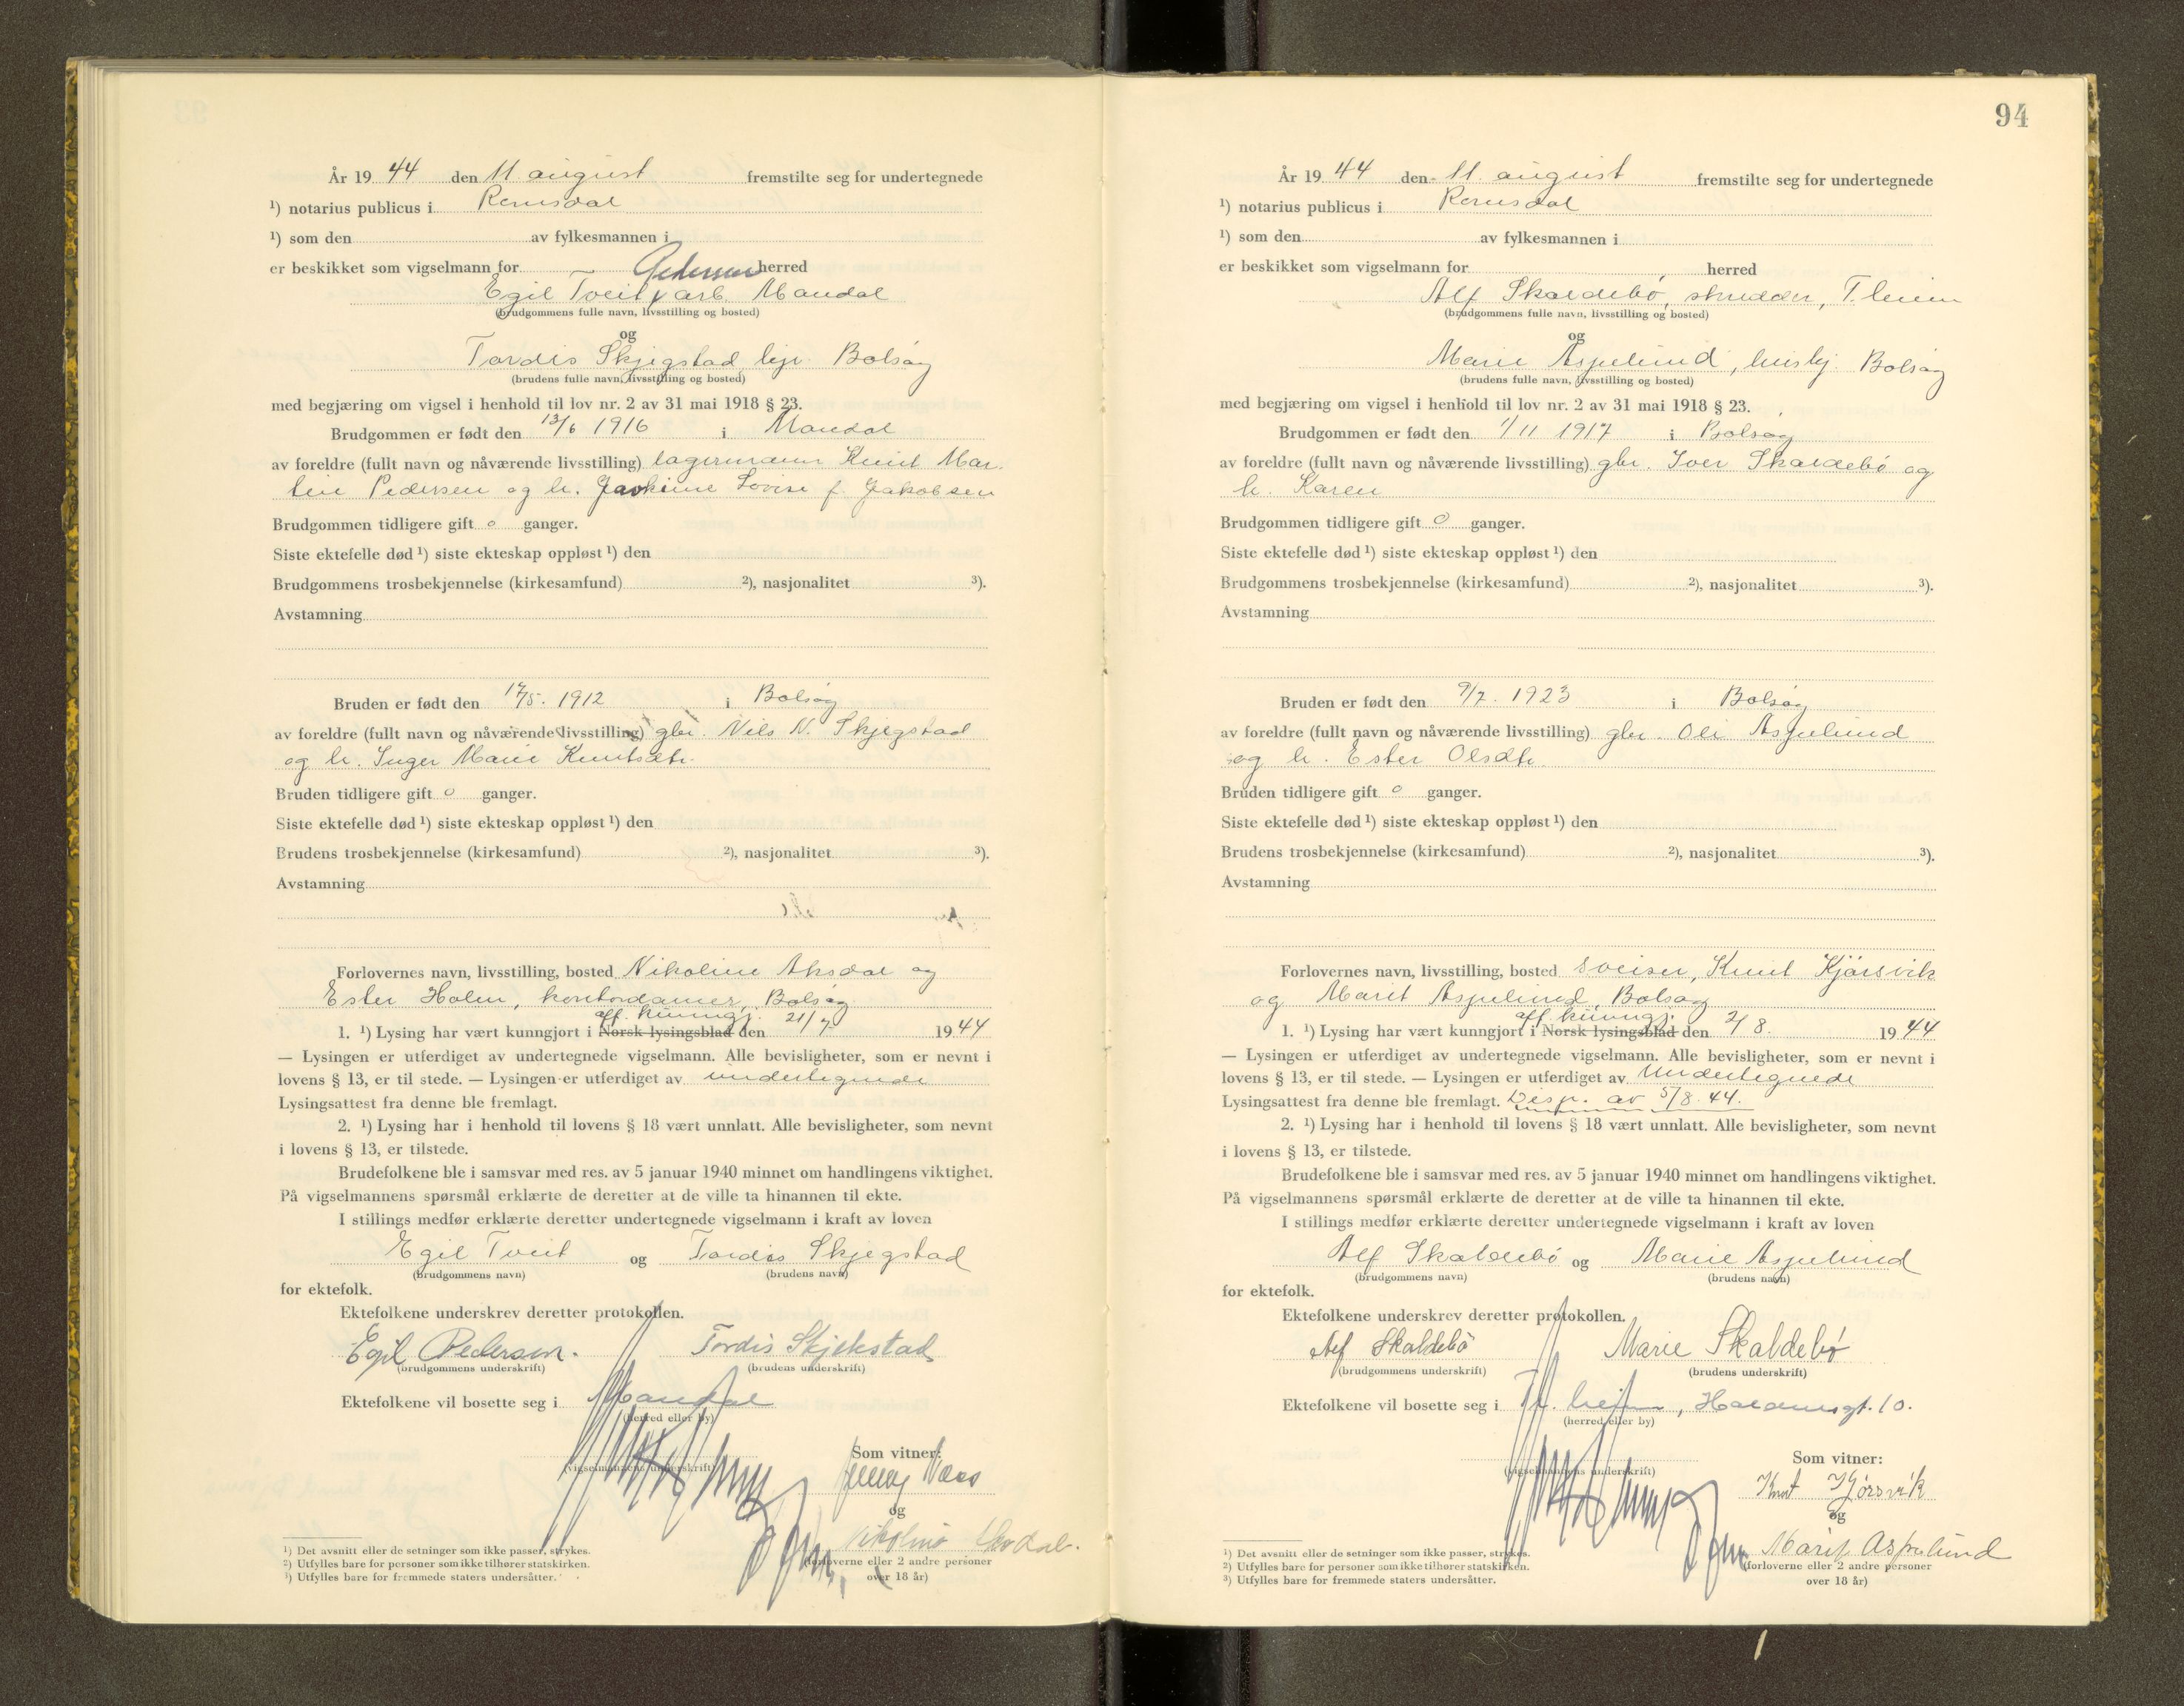 År 19 44 den 11 august fremstilte seg for undertegnede
¹) notarius publicus i Romsdal
¹) som den av fylkesmannen i
er beskikket som vigselmann for Pedersen herred
Egil Tveit, arb. Mandal
(brudgommens fulle navn, livsstilling og bosted)
og
Tordis Skjegstad Bolsøy
(brudens fulle navn, livsstilling og bosted)
med begjæring om vigsel i henhold til lov nr. 2 av 31 mai 1918 § 23.
Brudgommen er født den 13/6 1916 i Mandal
av foreldre (fullt navn og nåværende livsstilling) lagermann Knut Mar
Pedersen og h. Lovise f. Jakobsen
Brudgommen tidligere gift 0 ganger.
Siste ektefelle død ¹) siste ekteskap oppløst ¹) den
Brudgommens trosbekjennelse (kirkesamfund) ²), nasjonalitet ³).
Avstamning
Bruden er født den 17/5. 1912 i Bolsøy
av foreldre (fullt navn og nåværende livsstilling) gbr. Nils N. Skjegstad
og h. Inger Marie Knutsdtr.
Bruden tidligere gift 0 ganger.
Siste ektefelle død ¹) siste ekteskap oppløst ¹) den
Brudens trosbekjennelse (kirkesamfund) ²), nasjonalitet ³).
Avstamning
Forlovernes navn, livsstilling, bosted Nikoline Aksdal og
Ester Holm, kontordamer, Bolsøy
off. kunngj.
1. ¹) Lysing har vært kunngjort i Norsk lysingsblad den 21/7 1944
— Lysingen er utferdiget av undertegnede vigselmann. Alle bevisligheter, som er nevnt i
lovens § 13, er til stede. — Lysingen er utferdiget av undertegnede
Lysingsattest fra denne ble fremlagt.
2. ¹) Lysing har i henhold til lovens § 18 vært unnlatt. Alle bevisligheter, som nevnt
i lovens § 13, er tilstede.
Brudefolkene ble i samsvar med res. av 5 januar 1940 minnet om handlingens viktighet.
På vigselmannens spørsmål erklærte de deretter at de ville ta hinannen til ekte.
I stillings medfør erklærte deretter undertegnede vigselmann i kraft av loven
Egil Tveit og Tordis Skjegstad
(brudgommens navn) (brudens navn)
for ektefolk.
Ektefolkene underskrev deretter protokollen.
Egil Pedersen. Tordis Skjekstad
(brudgommens underskrift) (brudens underskrift)
Ektefolkene vil bosette seg i Mandal
(herred eller by)
Som vitner:
(vigselmannens underskrift)
Jenny Næss
og
(forloverne eller 2 andre personer
over 18 år)
¹) Det avsnitt eller de setninger som ikke passer, strykes.
²) Utfylles bare for personer som ikke tilhører statskirken.
³) Utfylles bare for fremmede staters undersåtter.
94
År 19 44 den 11. august fremstilte seg for undertegnede
¹) notarius publicus i Romsdal
¹) som den av fylkesmannen i
er beskikket som vigselmann for herred
Alf Skaldebø, skredder, Tr.heim
(brudgommens fulle navn, livsstilling og bosted)
og
Marie Aspelund, hushj. Bolsøy
(brudens fulle navn, livsstilling og bosted)
med begjæring om vigsel i henhold til lov nr. 2 av 31 mai 1918 § 23.
Brudgommen er født den 1/11 1917 i Bolsøy
av foreldre (fullt navn og nåværende livsstilling) gbr. Iver Skaldebø og
h. Karen
Brudgommen tidligere gift 0 ganger.
Siste ektefelle død ¹) siste ekteskap oppløst ¹) den
Brudgommens trosbekjennelse (kirkesamfund) ²), nasjonalitet ³).
Avstamning
Bruden er født den 9/7. 1923 i Bolsøy
av foreldre (fullt navn og nåværende livsstilling) gbr. Ole Aspelund
og h. Ester Olsdtr.
Bruden tidligere gift 0 ganger.
Siste ektefelle død ¹) siste ekteskap oppløst ¹) den
Brudens trosbekjennelse (kirkesamfund) ²), nasjonalitet ³).
Avstamning
Forlovernes navn, livsstilling, bosted sveiser, Knut Kjørsvik
og Marit Aspelund, Bolsøy
off. kunngj.
1. ¹) Lysing har vært kunngjort i Norsk lysingsblad den 2/8. 1944
— Lysingen er utferdiget av undertegnede vigselmann. Alle bevisligheter, som er nevnt i
lovens § 13, er til stede. — Lysingen er utferdiget av Undertegnede
Lysingsattest fra denne ble fremlagt. Disp. av 5/8.44.
2. ¹) Lysing har i henhold til lovens § 18 vært unnlatt. Alle bevisligheter, som nevnt
i lovens § 13, er tilstede.
Brudefolkene ble i samsvar med res. av 5 januar 1940 minnet om handlingens viktighet.
På vigselmannens spørsmål erklærte de deretter at de ville ta hinannen til ekte.
I stillings medfør erklærte deretter undertegnede vigselmann i kraft av loven
Alf Skaldebø og Marie Aspelund
(brudgommens navn) (brudens navn)
for ektefolk.
Ektefolkene underskrev deretter protokollen.
Alf Skaldebö Marie Skaldebø
(brudgommens underskrift) (brudens underskrift)
Ektefolkene vil bosette seg i Tr.heim, gt. 10.
(herred eller by)
Som vitner:
(vigselmannens underskrift)
Knut Kjørsvik
og
Marit Aspelund
(forloverne eller 2 andre personer
over 18 år)
¹) Det avsnitt eller de setninger som ikke passer, strykes.
²) Utfylles bare for personer som ikke tilhører statskirken.
³) Utfylles bare for fremmede staters undersåtter.